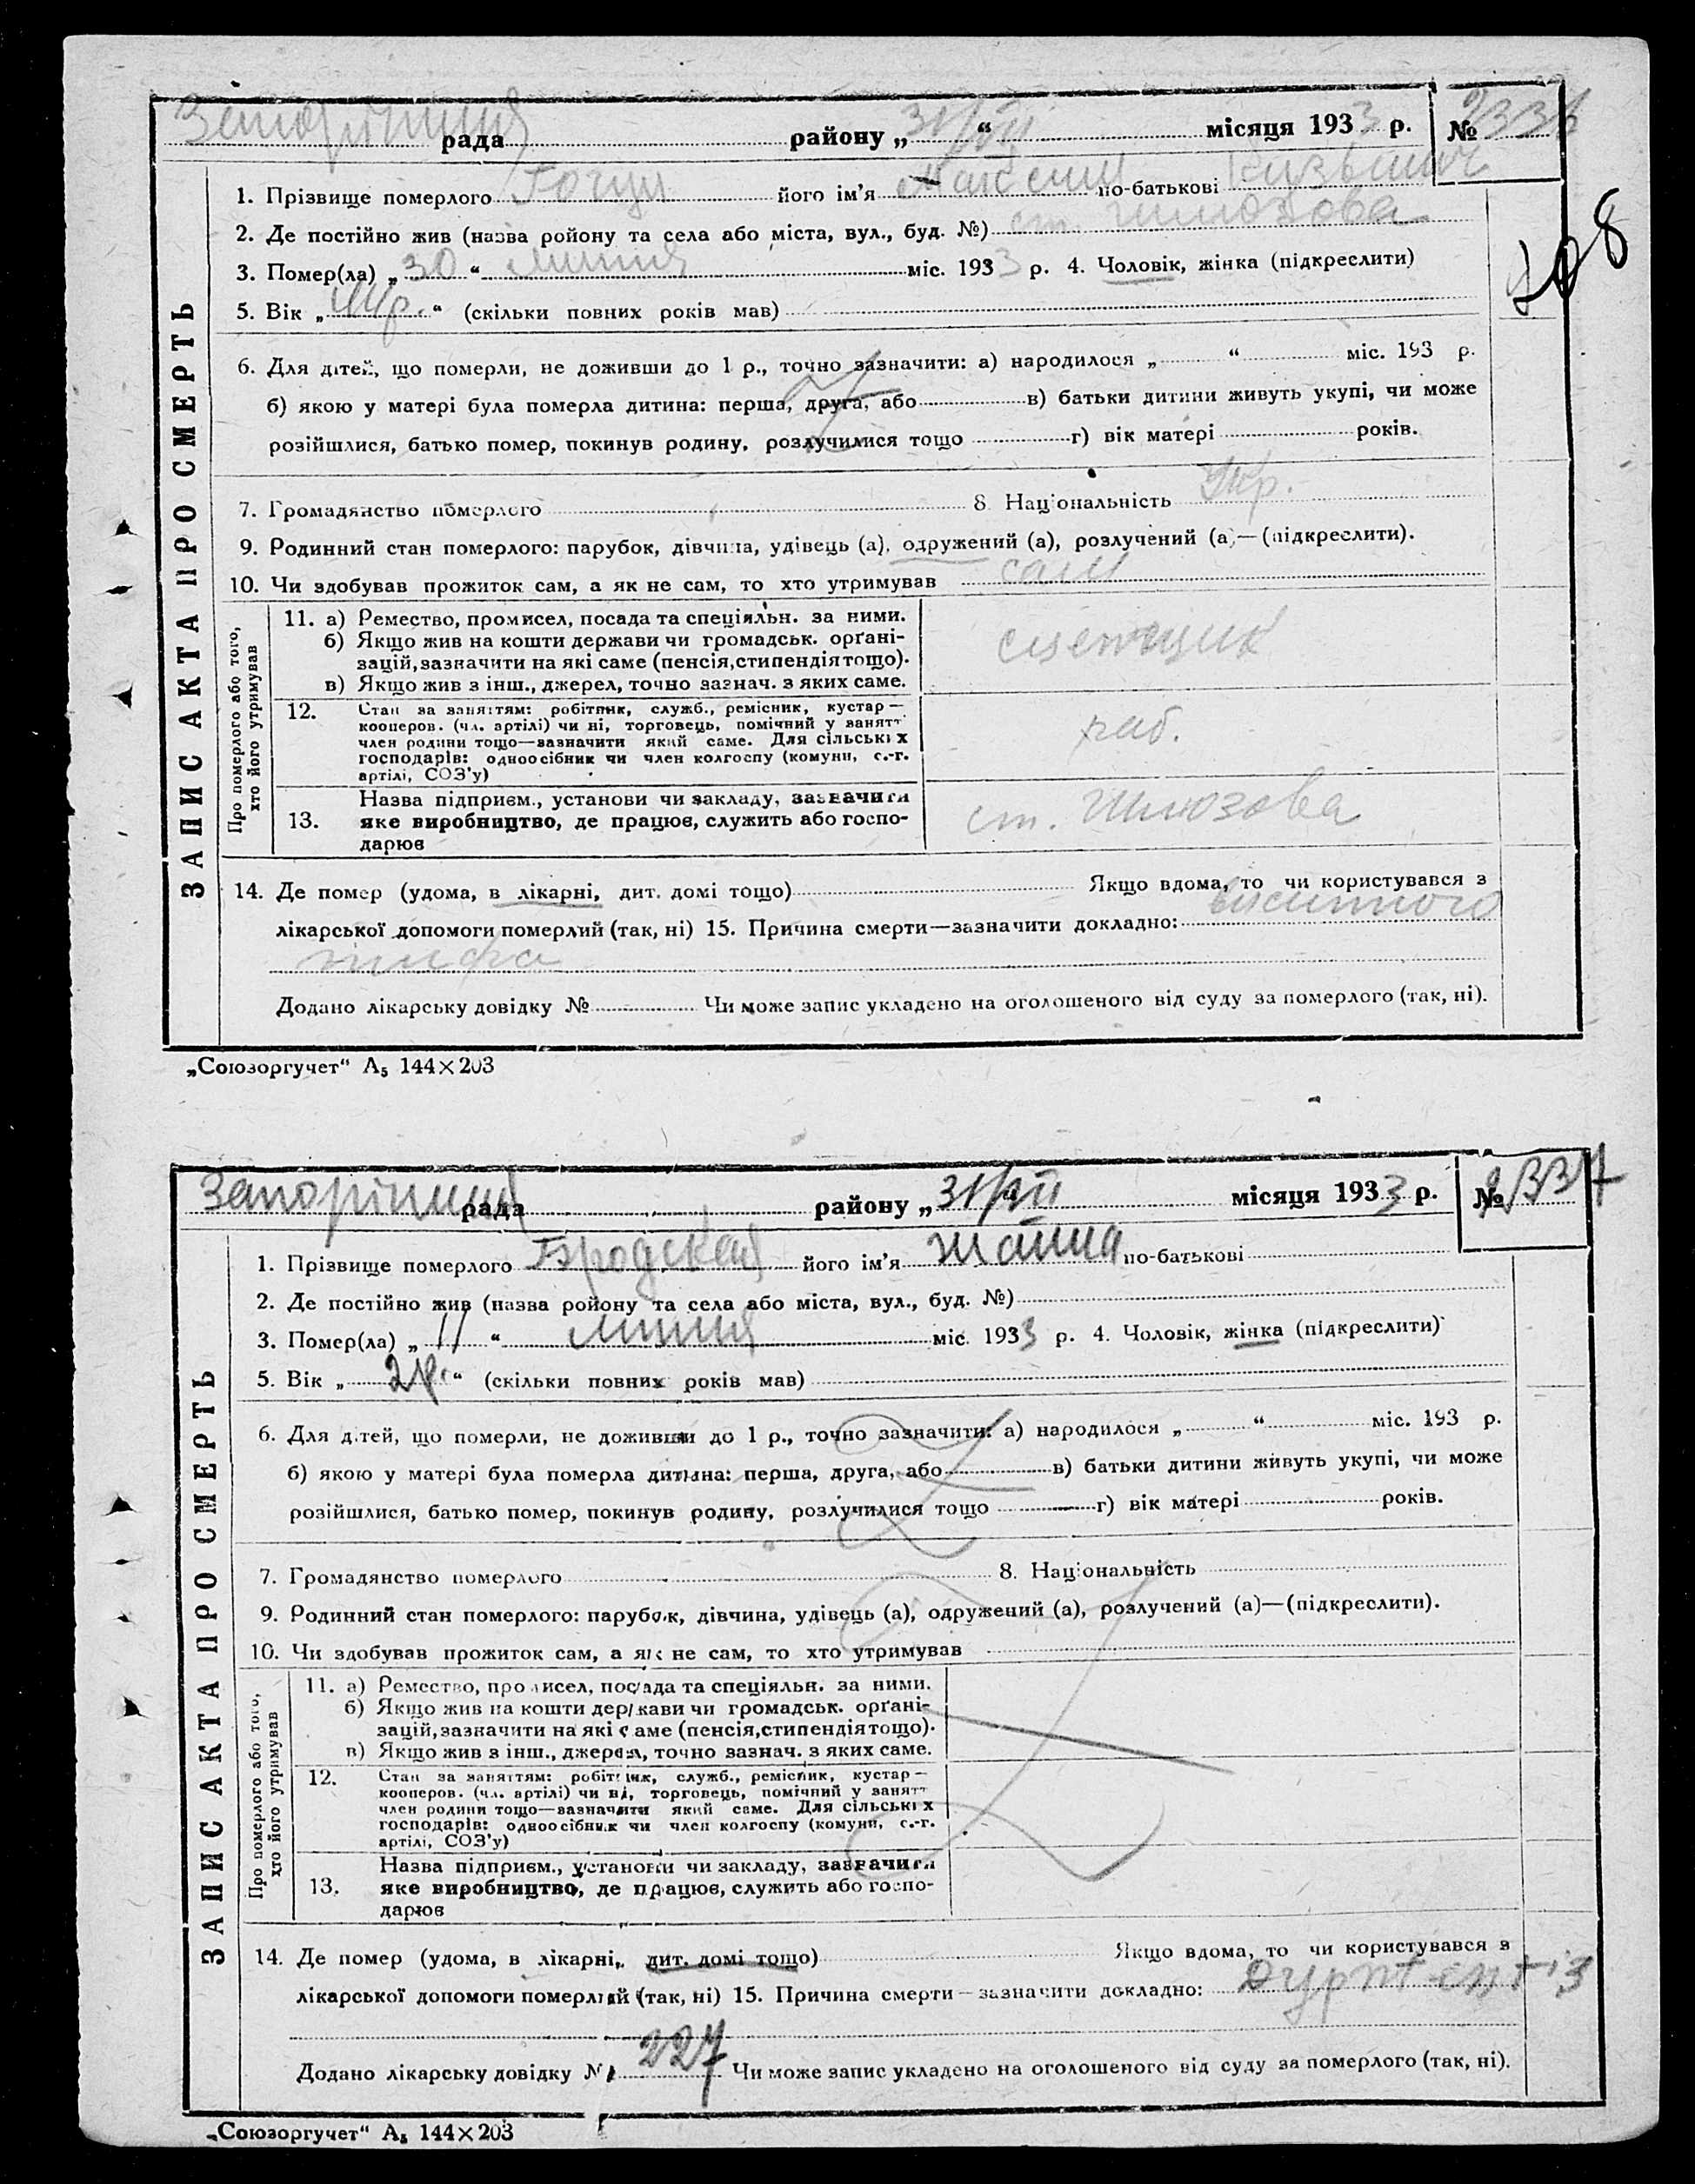 рада району „31/VII“ місяця 1933 р. №
1. Прізвище померлого його ім’я Максим по-батькові Кузьмич
2. Де постійно жив (назва ройону та села або міста, вул., буд. №) ст. Шлюзова
3. Помер(ла) „30“ липня міс. 1933 р. 4. Чоловік, жінка (підкреслити)
108
5. Вік „ р.“ (скільки повних років мав)
6. Для дітей, що померли, не доживши до 1 р., точно зазначити: а) народилося „ “ міс. 193 р.
б) якою у матері була померла дитина: перша, друга, або в) батьки дитини живуть укупі, чи може
розійшлися, батько помер, покинув родину, розлучилися тощо г) вік матері років.
7. Громадянство померлого 8. Національність Укр.
9. Родинний стан померлого: парубок, дівчина, удівець (а), одружений (а), розлучений (а)—(підкреслити).
10. Чи здобував прожиток сам, а як не сам, то хто утримував сам
ЗАПИС АКТА ПРО СМЕРТЬ
Про померлого або того, хто його утримував
11. а) Ремество, промисел, посада та спеціяльн. за ними.
б) Якщо жив на кошти держави чи громадськ. орґані-
зацій, зазначити на які саме (пенсія, стипендія тощо).
в) Якщо жив з інш., джерел, точно зазнач. з яких саме.
сцепщик
12. Стан за заняттям: робітник, служб., ремісник, кустар—
кооперов. (чл. артілі) чи ні, торговець, помічний у занятт
член родини тощо—зазначити який саме. Для сільських
господарів: одноосібник чи член колгоспу (комуни, с.-г.
артілі, СОЗ’у)
раб.
Назва підприєм., установи чи закладу, зазначити
13. яке виробництво, де працює, служить або госпо-
дарює
ст. Шлюзова
14. Де помер (удома, в лікарні, дит. домі тощо) Якщо вдома, то чи користувався з
лікарської допомоги померлий (так, ні) 15. Причина смерти—зазначити докладно:
тифа
Додано лікарську довідку № Чи може запис укладено на оголошеного від суду за померлого (так, ні).
„Союзоргучет“ А₅ 144×203
рада району „31/VII“ місяця 1933 р. № 2337
1. Прізвище померлого Бродская його ім’я по-батькові
2. Де постійно жив (назва ройону та села або міста, вул., буд. №)
3. Помер(ла) „11“ липня міс. 1933 р. 4. Чоловік, жінка (підкреслити)
5. Вік „2 р.“ (скільки повних років мав)
6. Для дітей, що померли, не доживши до 1 р., точно зазначити: а) народилося „ “ міс. 193 р.
б) якою у матері була померла дитина: перша, друга, або в) батьки дитини живуть укупі, чи може
розійшлися, батько помер, покинув родину, розлучилися тощо г) вік матері років.
7. Громадянство померлого 8. Національність
9. Родинний стан померлого: парубок, дівчина, удівець (а), одружений (а), розлучений (а)—(підкреслити).
10. Чи здобував прожиток сам, а як не сам, то хто утримував
ЗАПИС АКТА ПРО СМЕРТЬ
Про померлого або того, хто його утримував
11. а) Ремество, промисел, посада та спеціяльн. за ними.
б) Якщо жив на кошти держави чи громадськ. орґані-
зацій, зазначити на які саме (пенсія, стипендія тощо).
в) Якщо жив з інш., джерел, точно зазнач. з яких саме.
12. Стан за заняттям: робітник, служб., ремісник, кустар—
кооперов. (чл. артілі) чи ні, торговець, помічний у занятт
член родини тощо—зазначити який саме. Для сільських
господарів: одноосібник чи член колгоспу (комуни, с.-г.
артілі, СОЗ’у)
Назва підприєм., установи чи закладу, зазначити
13. яке виробництво, де працює, служить або госпо-
дарює
14. Де помер (удома, в лікарні, дит. домі тощо) Якщо вдома, то чи користувався з
лікарської допомоги померлий (так, ні) 15. Причина смерти—зазначити докладно:
Додано лікарську довідку № 227 Чи може запис укладено на оголошеного від суду за померлого (так, ні).
„Союзоргучет“ А₅ 144×203